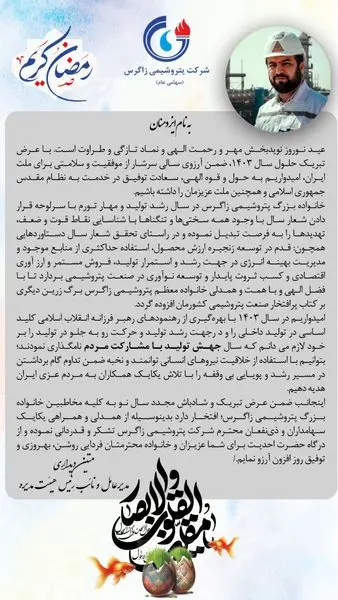 رمضان کریم
شرکت پتروشیمی زاگرس
(سهامی عام)
به نام ایزد منان
عید نوروز نویدبخش مهر و رحمت الهی و نماد تازگی و طراوت است. با عرض
تبریک حلول سال ۱۴۰۳، ضمن آرزوی سالی سرشار از موفقیت و سلامتی برای ملت
ایران، امیدواریم به حول و قوه الهی، سعادت توفیق در خدمت به نظام مقدس
جمهوری اسلامی و همچنین ملت عزیزمان را داشته باشیم.
خانواده بزرگ پتروشیمی زاگرس در سال رشد تولید و مهار تورم با سرلوحه قرار
دادن شعار سال با وجود همه سختی‌ها و تنگناها با شناسایی نقاط قوت و ضعف،
تهدیدها را به فرصت تبدیل نموده و در راستای تحقق شعار سال دستاوردهایی
همچون: قدم در توسعه زنجیره ارزش محصول، استفاده حداکثری از منابع موجود و
مدیریت بهینه انرژی در جهت رشد و استمرار تولید، فروش مستمر و ارز آوری
اقتصادی و کسب ثروت پایدار و توسعه نوآوری در صنعت پتروشیمی بردارد تا با
فضل الهی و با همت و همدلی خانواده معظم پتروشیمی زاگرس برگ زرین دیگری
بر کتاب پرافتخار صنعت پتروشیمی کشورمان افزوده گردد.
امیدواریم در سال ۱۴۰۳ با بهره‌گیری از رهنمودهای رهبر فرزانه انقلاب اسلامی کلید
اساسی در تولید داخلی را و در جهت رشد تولید و حرکت رو به جلو در تولید را بر
خود لازم می دانم که سال جهش تولید با مشارکت مردم نامگذاری نمودند؛
بتوانیم با استفاده از خلاقیت نیروهای انسانی توانمند و نخبه ضمن تداوم گام برداشتن
در مسیر رشد و پویایی بی وقفه را با تلاش یکایک همکاران به مردم عزیز ایران
هدیه دهیم.
اینجانب ضمن عرض تبریک و شادباش مجدد سال نو به کلیه مخاطبین خانواده
بزرگ پتروشیمی زاگرس؛ افتخار دارد بدینوسیله از همدلی و همراهی یکایک
سهامداران و ذی‌نفعان محترم شرکت پتروشیمی زاگرس تشکر و قدردانی نموده و از
درگاه حضرت احدیت برای شما عزیزان و خانواده محترمتان فردایی روشن، بهروزی و
توفیق روز افزون آرزو نمایم./
متین دیداری
مدیرعامل و نائب رئیس هیئت مدیره
یا مقلب القلوب و الابصار